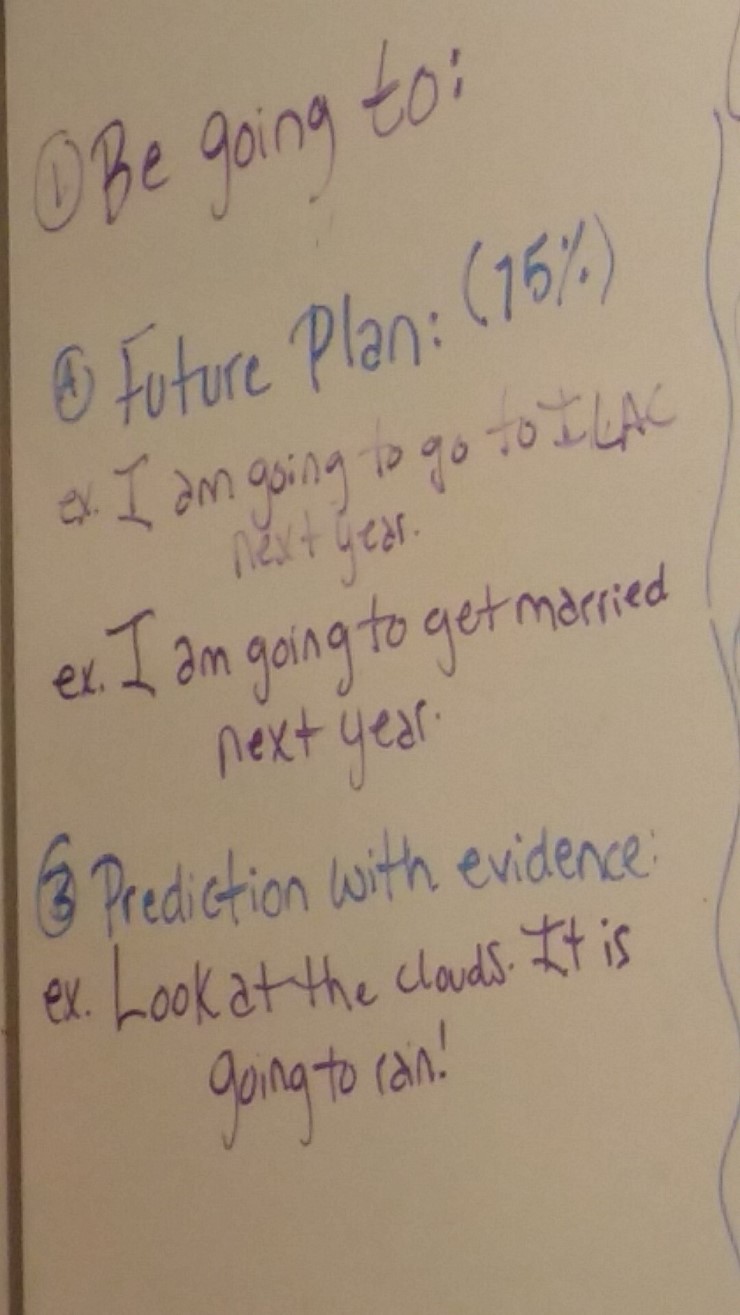 ① Be going to:
Ⓐ Future Plan: (75%)
ex. I am going to go to ILAC
next year.
ex. I am going to get married
next year.
Ⓑ Prediction with evidence:
ex. Look at the clouds. It is
going to rain!